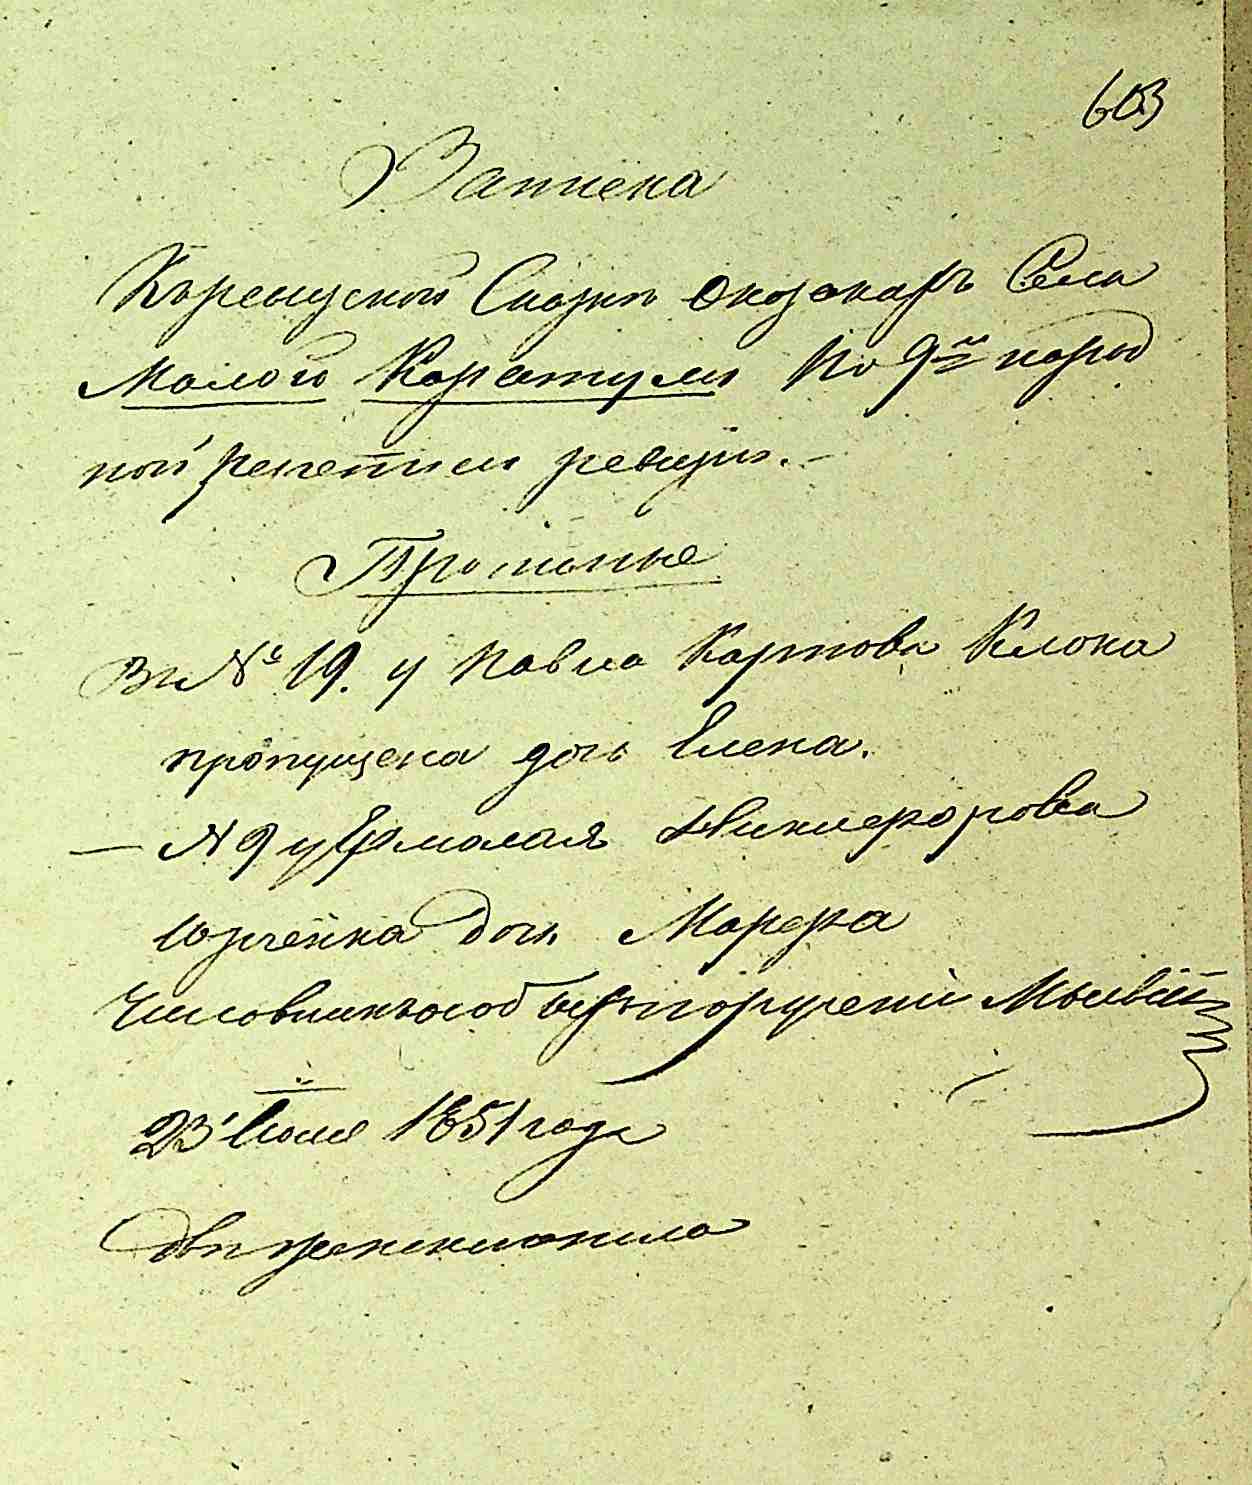 603
Записка
Къ ревизской Сказкѣ о козакахъ Села
Малого Каратуля по 9й народ
ной переписи ревизіи. —
Прописные
Въ № 19. у Павла Карпова Клока
пропущена дочь Елена.
— № 9 у Ермолая Никифорова
Юрченка дочь Марфа
Чиновникъ особыхъ порученій
23 Іюля 1851 года
Двѣ женскаго пола